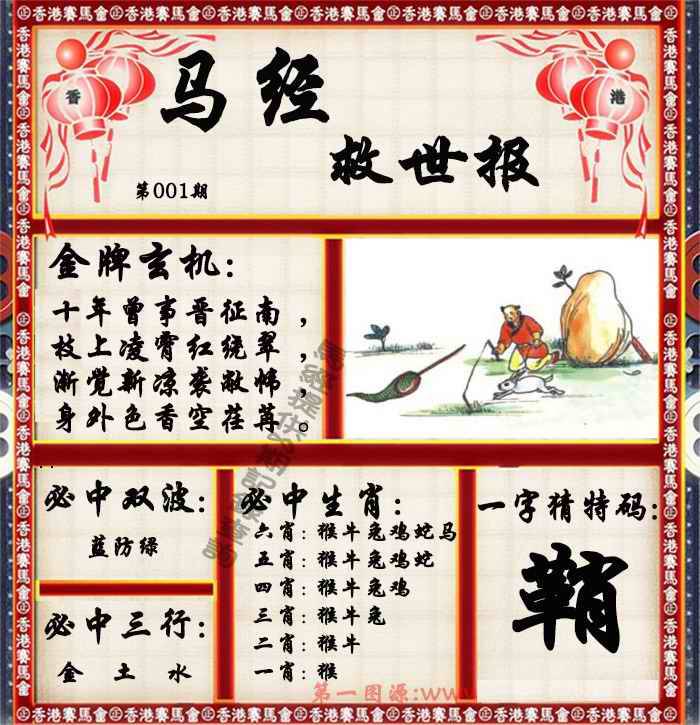 香港賽馬會
香
港
马经
救世报
第001期
金牌玄机:
十年曾事晋征南，
枝上凌霄红绕翠，
渐觉新凉袭敝帏，
身外色香空荏苒。
必中双波:
蓝防绿
必中三行:
金 土 水
必中生肖:
六肖:猴牛兔鸡蛇马
五肖:猴牛兔鸡蛇
四肖:猴牛兔鸡
三肖:猴牛兔
二肖:猴牛
一肖:猴
一字猜特码:
鞘
第一图源:www